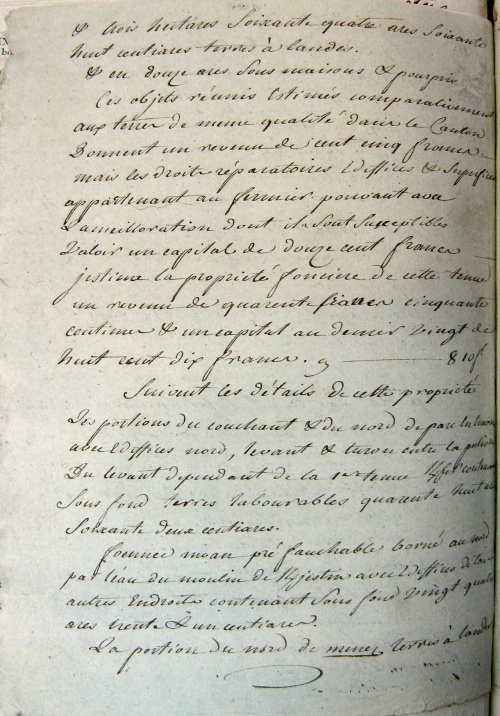 & trois hectares Soixante quatre ares Soixante
huit centiares terres à landes.
& en douze ares Sous maisons & pourpris
Ces objets réunis Estimés comparativement
aux terres de meme qualité dans le Canton
Donnent un revenu de cent cinq francs
mais les droits réparatoires Edeffices & Superfices
appartenant au fermier pouvant avec
L'amelloration dont ils Sont Susceptibles
Valoir un capital de douze cent francs
jestime la proprieté fonciere de cette tenue
un revenu de quarente francs cinquante
centimes & un capital au denier vingt de
huit cent dix francs. 810 f
Suivent les détails de cette proprieté
Les portions du couchant & du nord de
avec Edeffices nord, levant & entre la
Du levant dependant de la 1re tenue contenant
Sous fond terres labourables quarente huit ares
Soixante deux centiares.
foennec moan pré fauchable borné au nord
par l'eau du moulin de avec Edeffices de
autres Endroits contenant Sous fond vingt quatre
ares trente & un centiares
La portion du nord de menez terres à landes